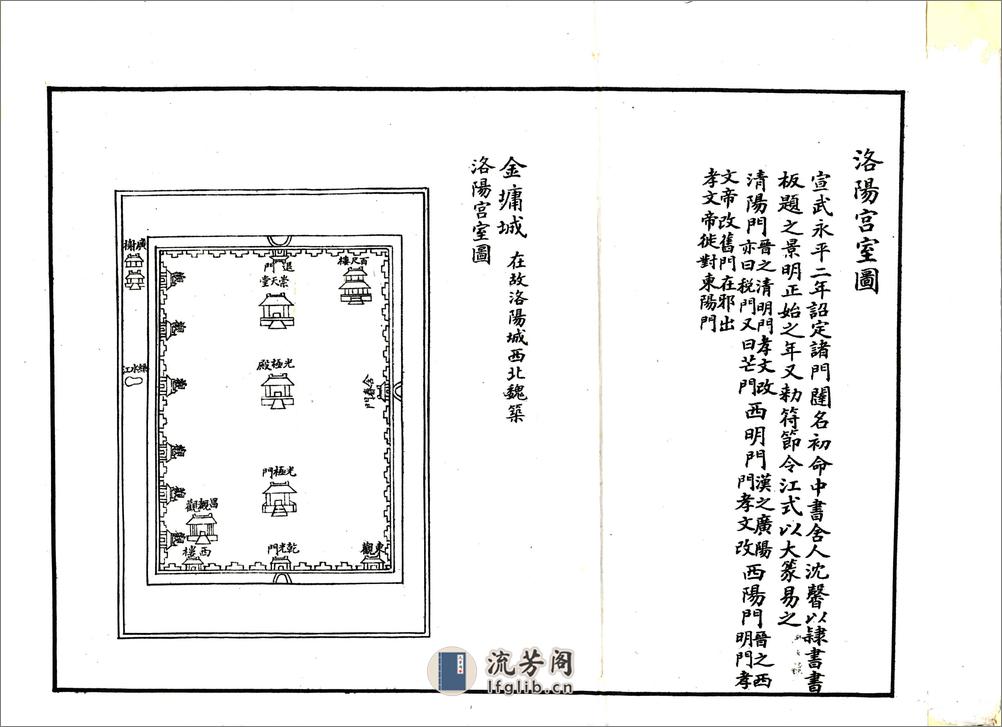 洛陽宮室圖
宣武永平二年詔定諸門闥名初命中書舍人沈馨以隸書書
板題之景明正始之年又勅符節令江式以大篆易之
清陽門 晉之清明門孝文改
亦曰税門又曰芒門
西明門 漢之廣陽
門孝文改
西陽門 晉之西
明門孝
文帝改舊門在邪出
孝文帝徙對東陽門
金墉城 在故洛陽城西北魏築
洛陽宮室圖
百尺樓
退門
廣榭
崇天堂
光極殿
光極門
西樓
乾光門
東觀
流芳阁
lfglib.cn